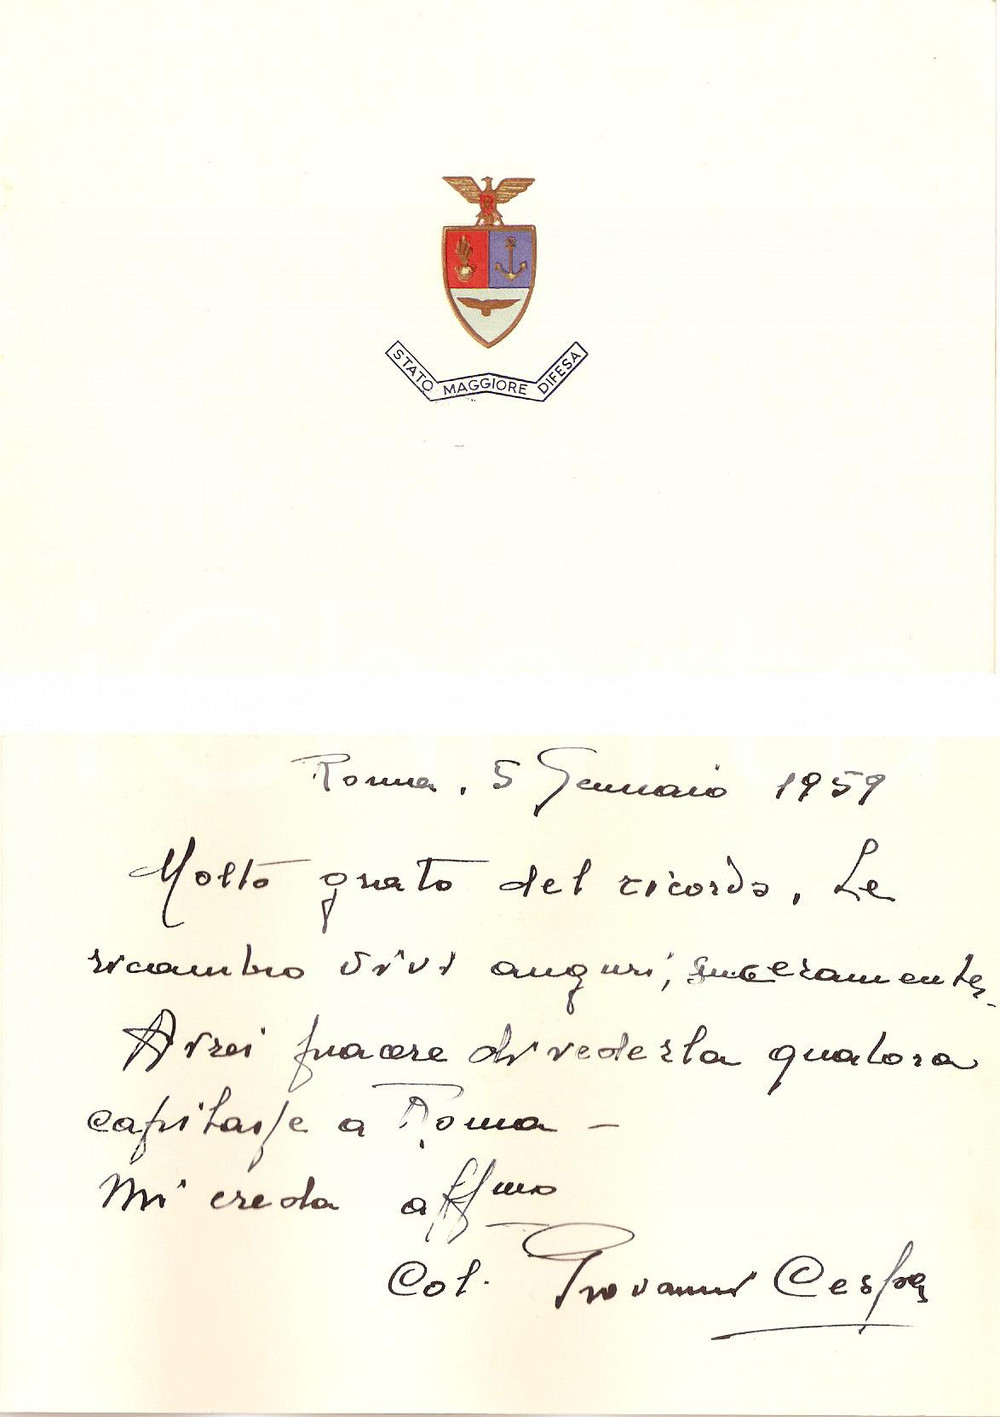 STATO MAGGIORE DIFESA
Roma, 5 Gennaio 1959
Molto grato del ricordo, Le
ricambio vivi auguri, sinceramente.
Avrei piacere di vederla qualora
capitasse a Roma –
Mi creda affmo
Col. Giovanni